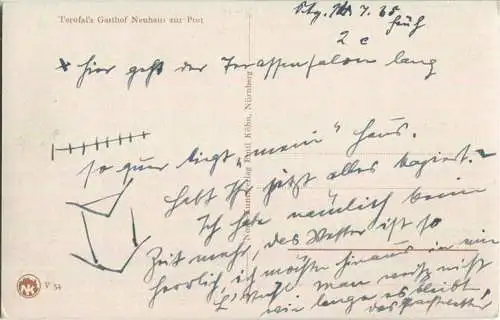 Terofal's Gasthof Neuhaus zur Post
7. 38
früh
2 c
x hier geht der Terassensalon lang
so quer liegt "mein" Haus.
Habt Ihr jetzt alles kapiert?
Ich habe nämlich keine
Zeit mehr, das Wetter ist so
herrlich, ich möchte hinaus in
man weiß nicht
wie lange es bleibt,
Kunstverlag Emil Köhn, Nürnberg
NK V 54